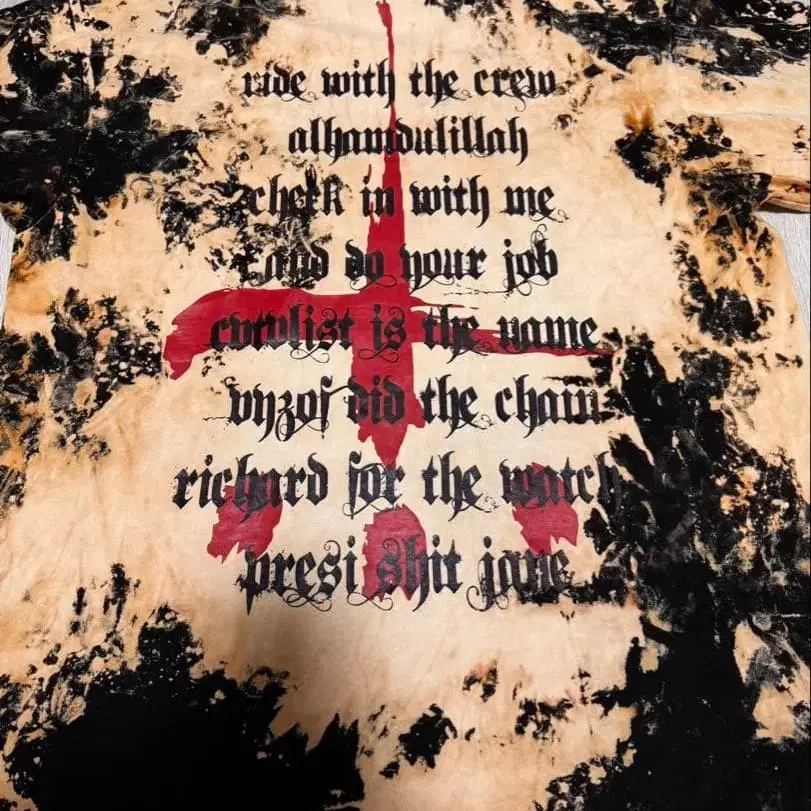 ride with the crew
alhamdulillah
check in with me
and do your job
cvtvlist is the name
vyzof did the chain
richard for the watch
presi shit jane